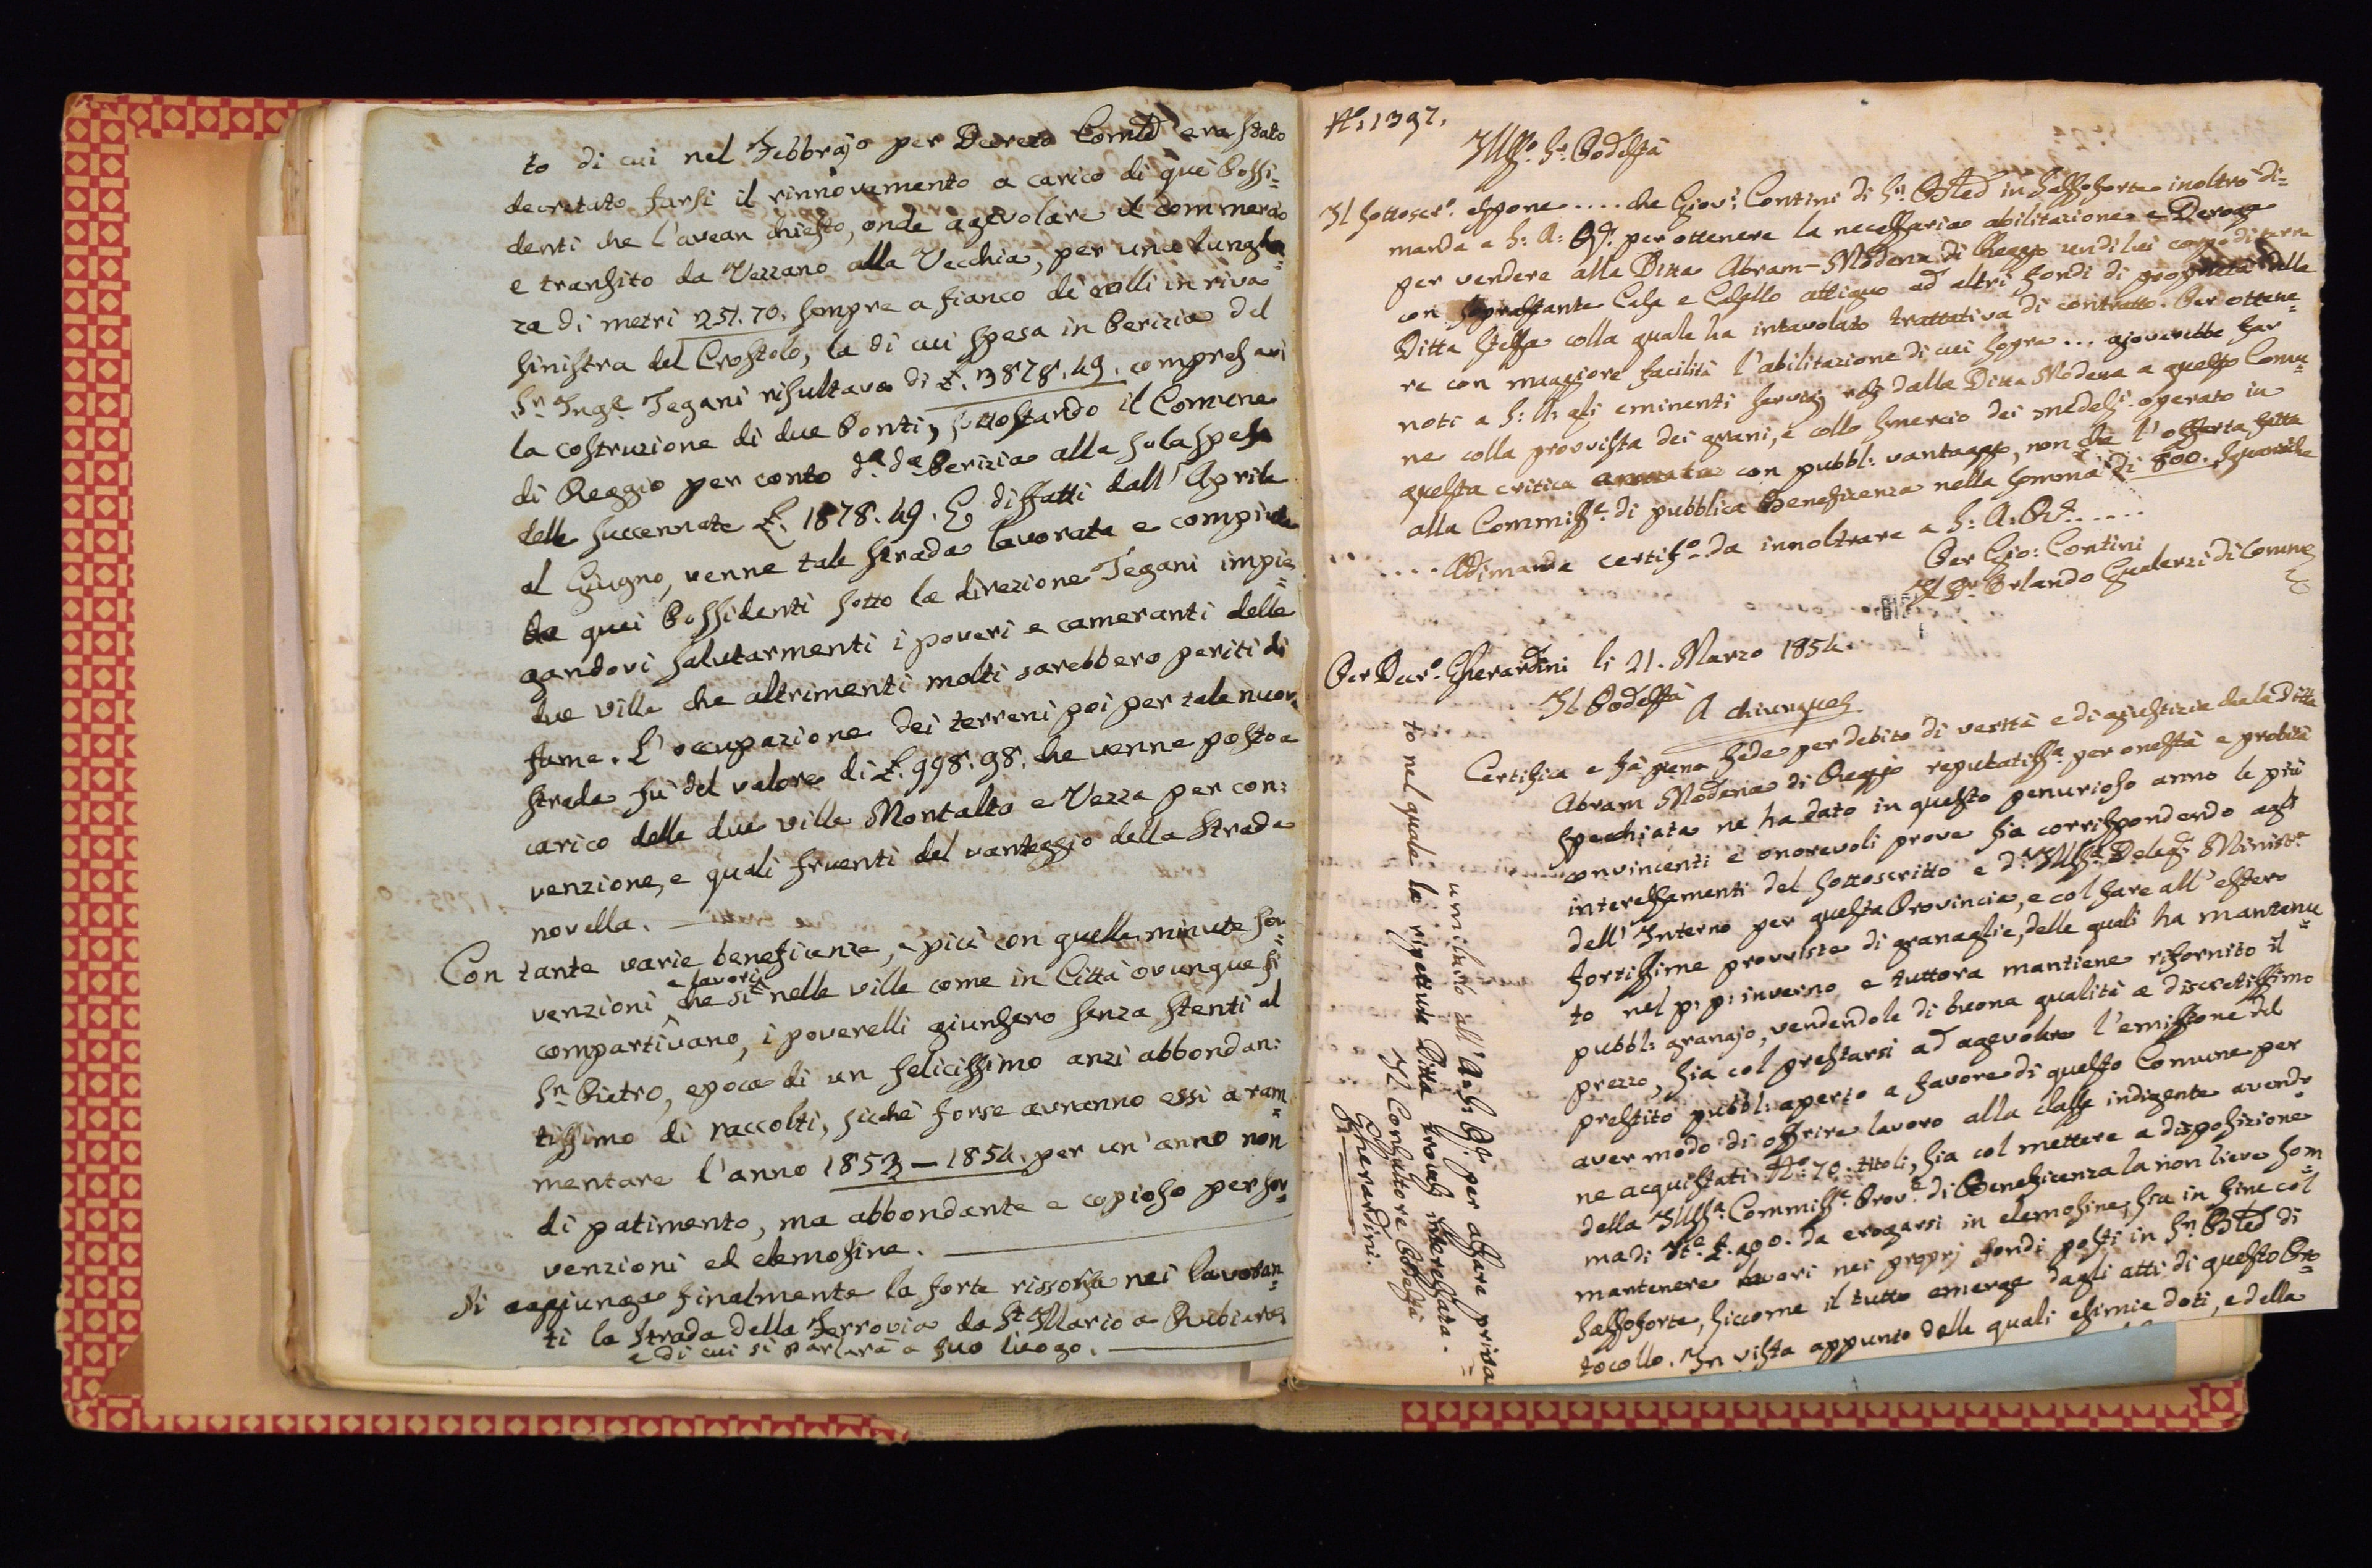 to di cui nel Febbrajo per Decreto Comle era stato
decretato farsi il rinnovamento a carico di que' Possi=
denti che l'avean chiesto, onde agevolare il commercio
e transito da Vezzano alla Vecchia, per una lunghez=
za di metri 251.70. sempre a fianco di colli in riva
sinistra del Crostolo, la di cui spesa in Perizia del
Sr. Inge. Tegani risultava di £. 3878.49. compresavi
la costruzione di due Ponti, sottostando il Comune
di Reggio per conto da. da Perizia alla sola spesa
delle succennate £. 1878.49. E diffatti dall' Aprile
al Giugno, venne tale strada lavorata e compiuta
da quei Possidenti sotto la direzione Tegani impie=
gandovi salutarmenti i poveri e cameranti delle
due ville che altrimenti molti sarebbero periti di
fame. L'occupazione dei terreni poi per tale nuova
strada fù del valore di £. 998.98. che venne posto a
carico delle due ville Montalto e Vezza per con=
venzione, e quali fruenti del vantaggio della strada
novella.
Con tante varie beneficenze, e più con quelle minute sov=
venzioni e lavori che sì nelle ville come in Città ovunque si
compartivano, i poverelli giunsero senza stenti al
Sn. Pietro, epoca di un felicissimo anzi abbondan=
tissimo di raccolti, sicchè forse avranno essi a ram=
mentare l'anno 1853 — 1854. per un'anno non
di patimento, ma abbondante e copioso per sov=
venzioni ed elemosine.
Si aggiunga finalmente la forte rissorsa nei lavoran=
ti la strada della Ferrovia da St. Illario a Rubiera
e di cui si parlerà a suo luogo.
No. 1397.
Illmo. Sr. Podestà
Il sottoscro. espone .... che Giovi. Contini di Sn. Bted in Sassoforte inoltrò di=
manda a S: A: Rle. per ottenere la necessaria abilitazione e Deroga
per vendere alla Ditta Abram - Modena di Reggio un di lui corpo di terra
con soprastante Casa e Casello attiguo ad altri fondi di proprietà della
Ditta stessa colla quale ha intavolato trattativa di contratto. Per ottene=
re con maggiore facilità l'abilitazione di cui sopra ... gioverebbe far
noti a S: A: gli eminenti servigj resi dalla Ditta Modena a questo Comu=
ne colla provvista dei grani, e collo smercio dei medesi. operato in
questa critica annata con pubbl: vantaggio, non che l'offerta fatta
alla Commisse. di pubblica Beneficenza nella somma di 800.
.... Adimanda certifo. da innoltrare a S: A: Rle. .....
Per Gio: Contini
Il Dr. Orlando Gualerzi di Comune
Per Decro. Gherardini li 21. Marzo 1854.
Il Podestà
A chiunque
Certifica e fà piena fede per debito di verità e di giustizia che la Ditta
Abram Modena di Reggio reputatissa. per onestà e probità
specchiata ne ha dato in questo penurioso anno le più
convincenti e onorevoli prove sia corrispondendo agli
interessamenti del sottoscritto e dell' Illma. Delege. Ministe.
dell' Interno per questa Provincia, e col fare all'estero
fortissime provviste di granaglie, delle quali ha mantenu=
to nel p: p: inverno e tuttora mantiene rifornito il
pubbl: granajo, vendendole di buona qualità a discretissimo
prezzo, sia col prestarsi ad agevolare l'emissione del
prestito pubbl: aperto a favore di questo Comune per
aver modo di offrire lavoro alla classe indigente avendo=
ne acquistati No. 70. titoli, sia col mettere a disposizione
della Illma. Commisse. Prove. di Beneficenza la non lieve som=
ma di £. 400. da erogarsi in elemosine, sia in fine col
mantenere lavori nei proprj fondi posti in Sn. Bted di
Sassoforte, siccome il tutto emerge dagli atti di questo Pro=
tocollo. In vista appunto delle quali esimie doti, e della
umiliato all' A: S: Rle. per affare priva=
to nel quale la ripettuta Ditta trovasi interessata.
Il Consultore Podestà
Gherardini.